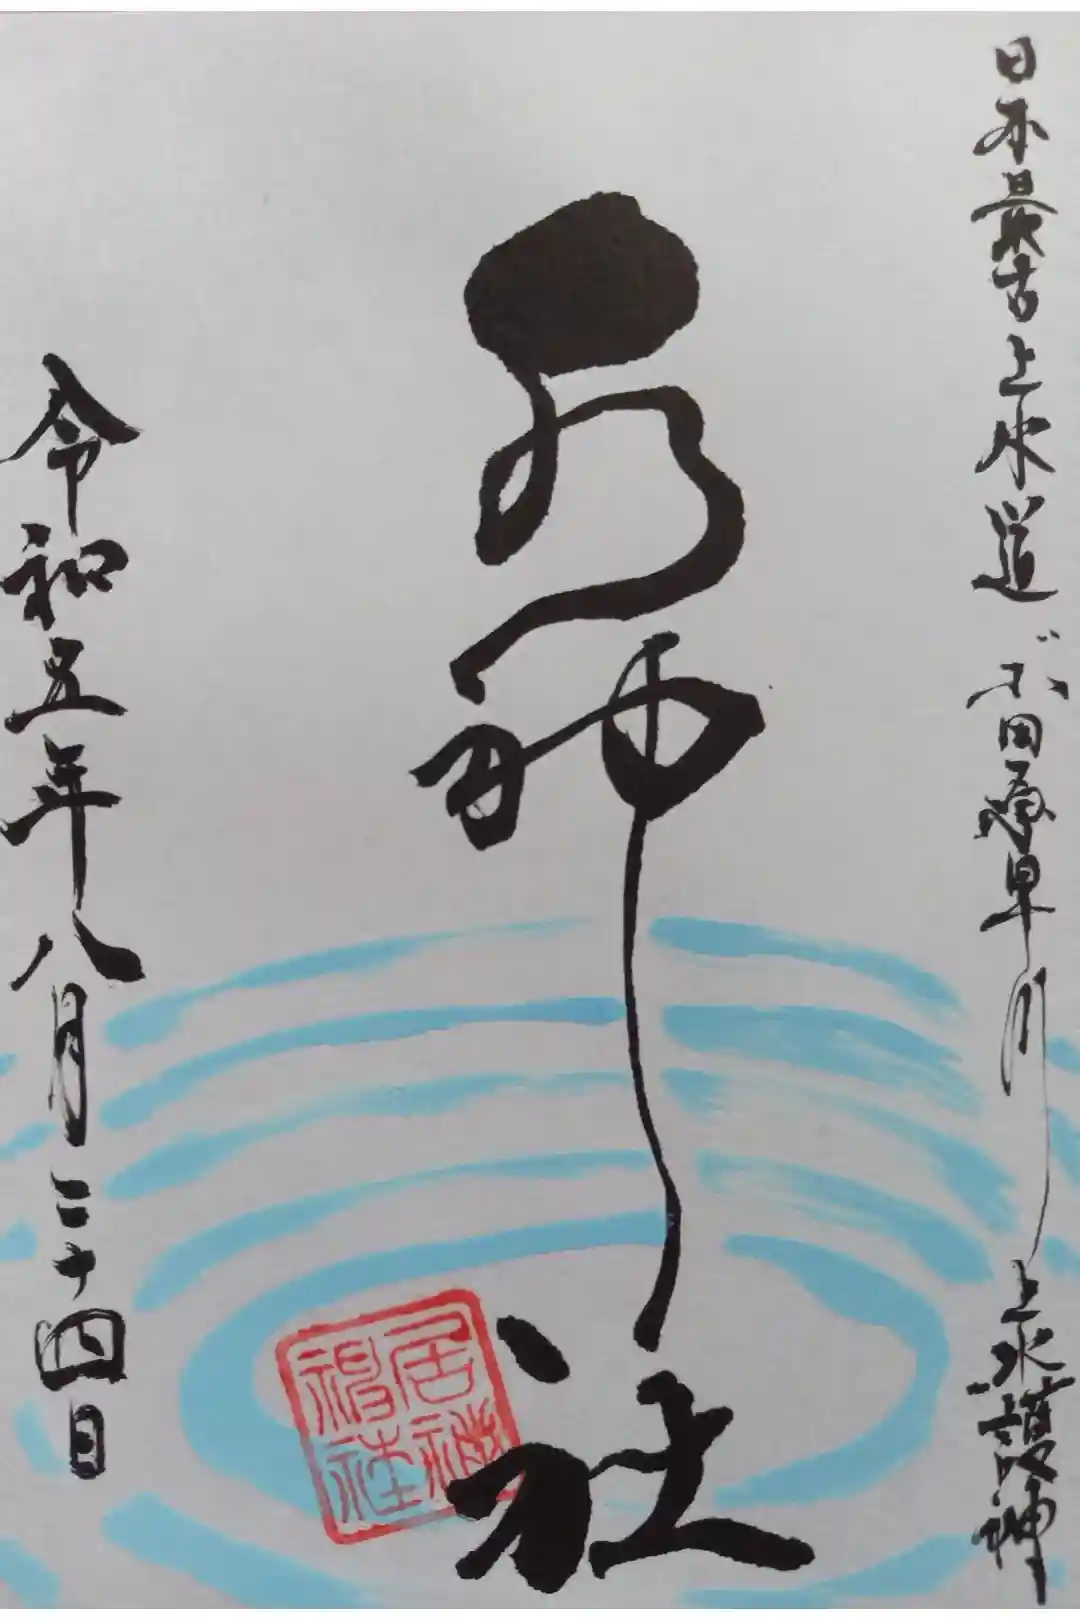 日本最古上水道 小田原早川上水護神
水神社
令和五年八月二十四日
居神神社